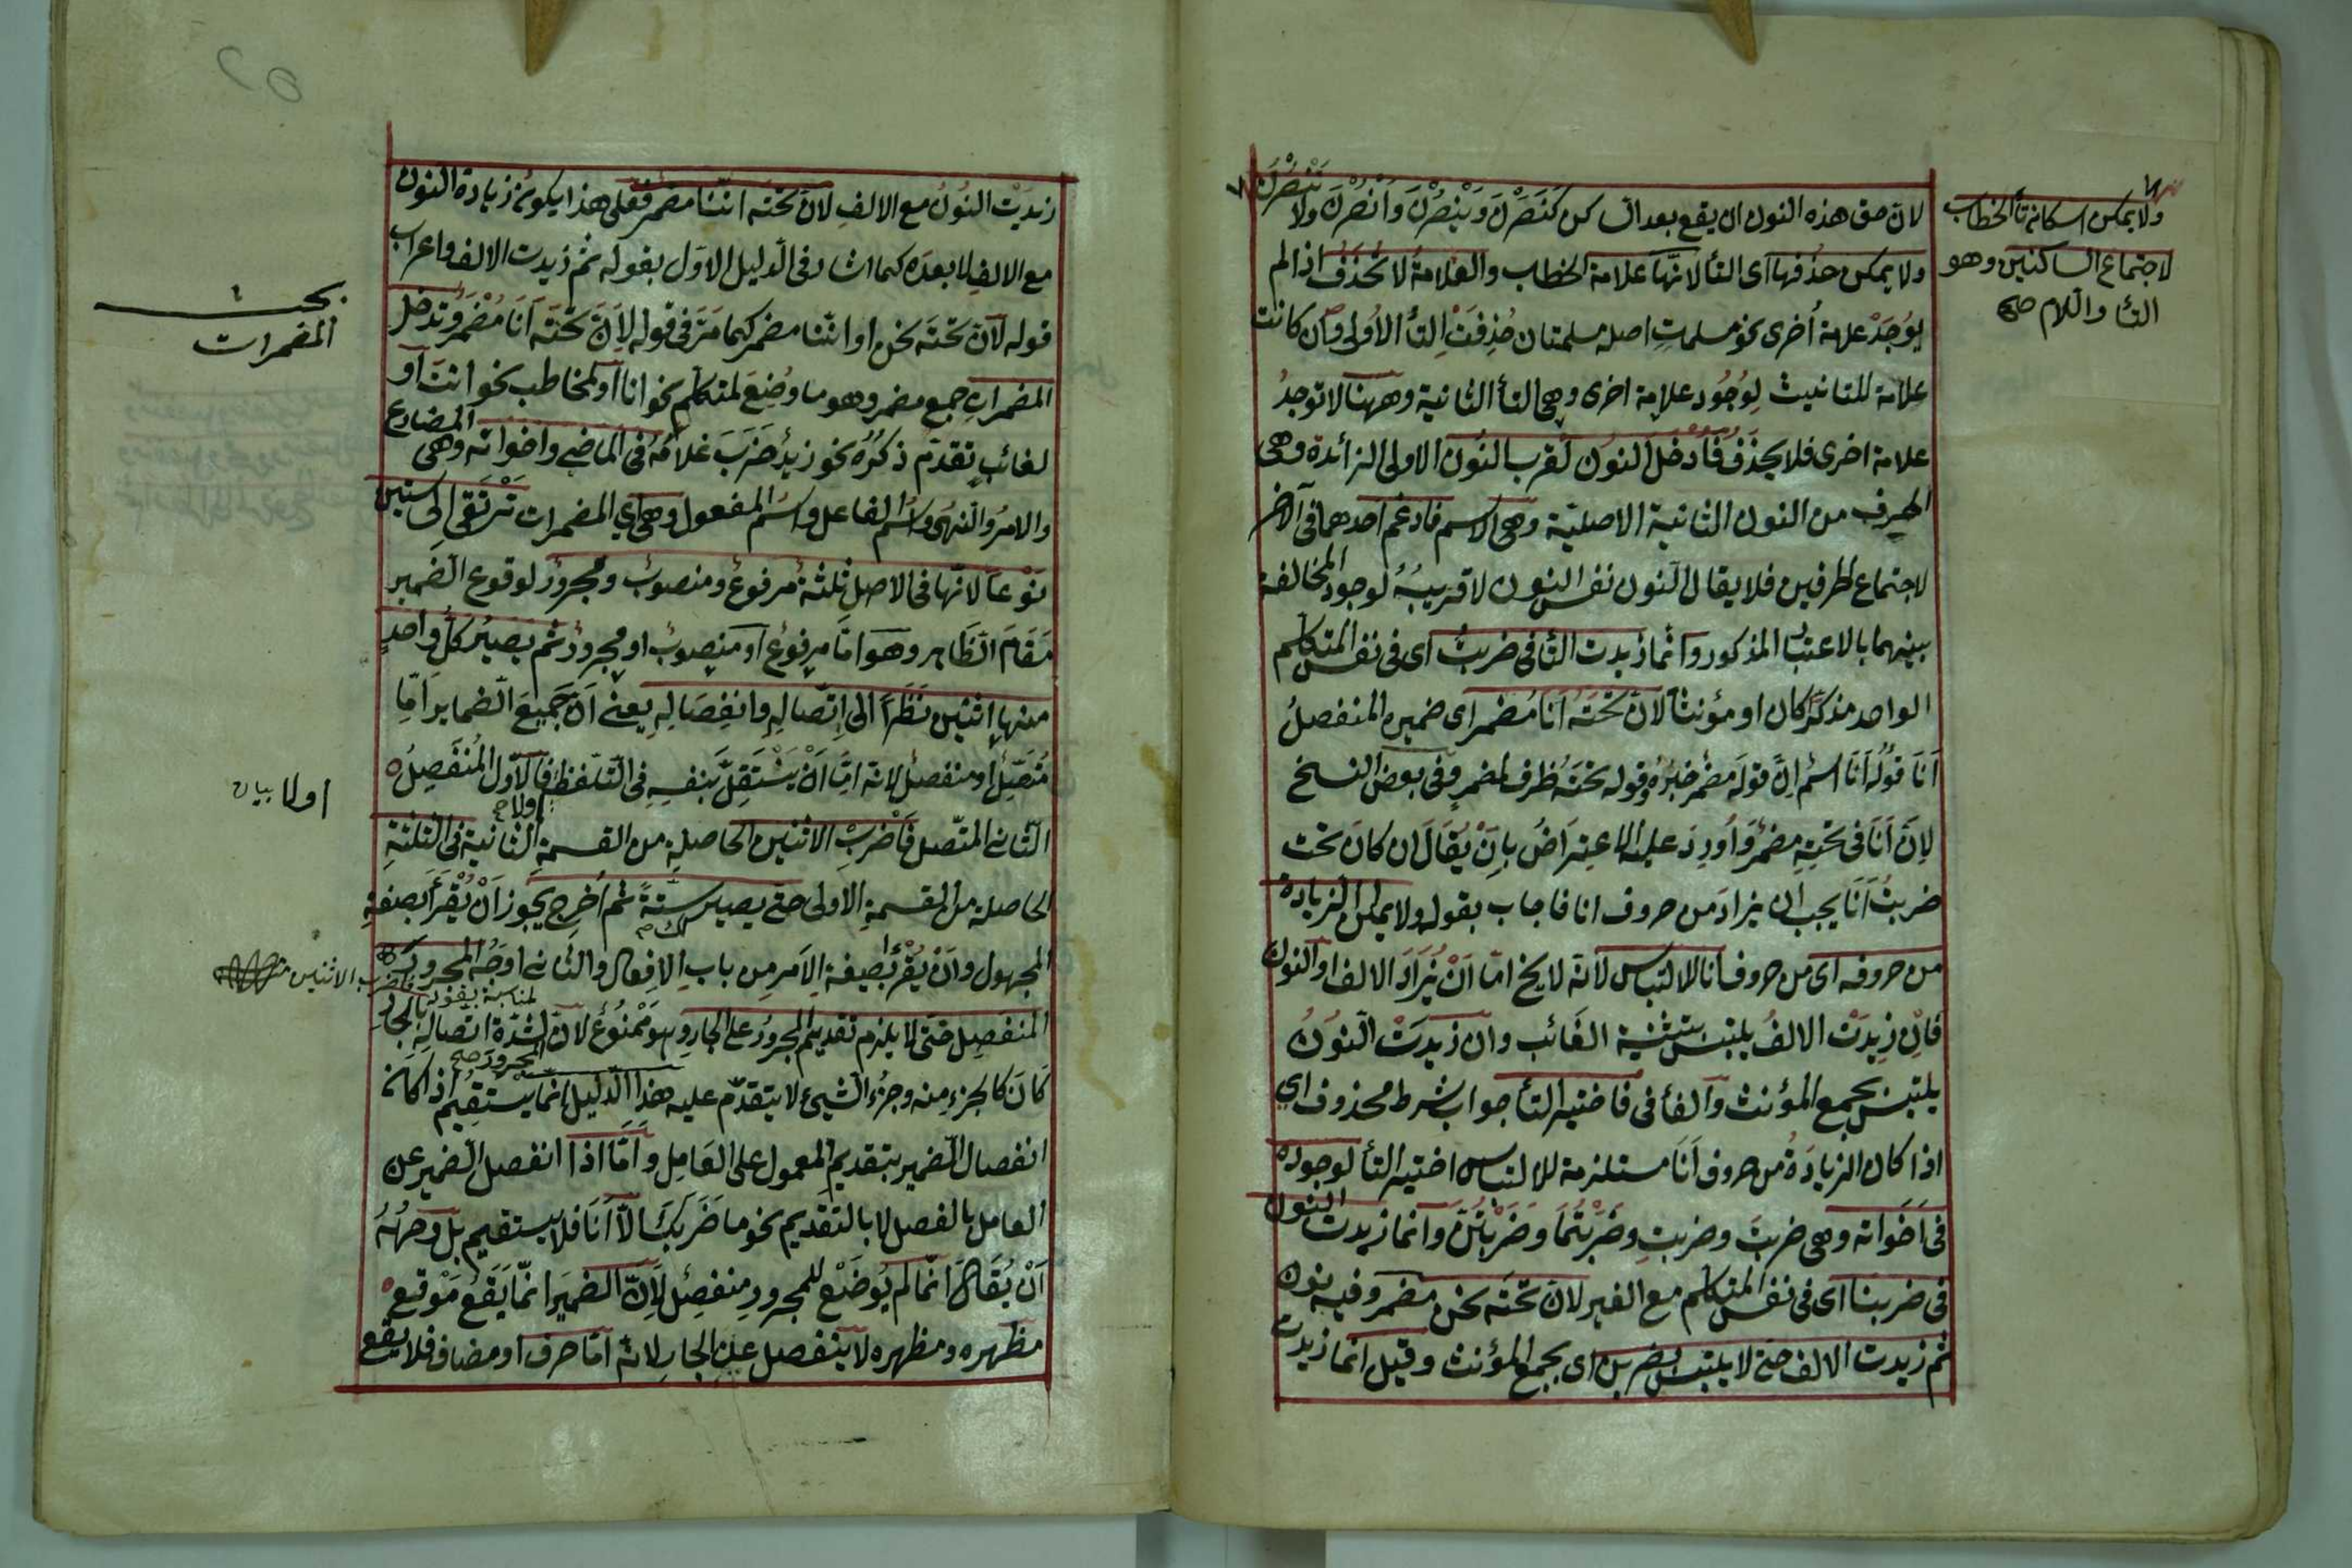 لان حق هذه النون ان يقع بعد الساكن كنَصَرْنَ وَيَنْصُرْنَ وَانْصُرْنَ ولا تَنْصُرْنَ
ولا يمكن حذفها اى التأ لانّها علامة الخطاب والعلامةُ لا تُحْذَفُ اذا لم
يُوجَدْ علامة أُخرى نحو مسلمات اصله مسلمتات حُذِفَتْ التأ الاُولى وان كانت
علامة للتانيث لِوُجُود علامة اخرى وهى التأ الثانية وههنا لا توجدُ
علامة اخرى فلا يحذف فَأُدخل النون لقرب النون الاولى الزائدة وهى
الحرف من النون الثانية الاصليّة وهى الاسم فادغم احدهما فى الآخر
لاجتماع الحرفين فلا يقال النون نفس النون لا قريبُهُ لوجود المخالفة
بينهما بالاعتبار المذكور وانّما زيدت التأ فى ضربتُ اى فى نفس المتكلم
الواحد مذكّراً كان او مؤنثا لانّ تحتَهُ أَنَا مُضمر اى ضميره المنفصلُ
اَنَا قولُه اَنَا اسْمُ انّ قولَه مضمرٌ خبرُهُ وقوله تحتَهُ ظرف لمضمرٍ وفى بعض النسخ
لانّ اَنَا فى تَحْتِهِ مضمرٌ وَاُورِدَ عليه الاعتراضُ بِاَنْ يُقَالَ ان كان تحت
ضربتُ اَنَا يجب ان يزادَ من حروف انا فاجاب بقوله ولا يمكن الزيادة
من حروفه اى من حروف انا للالتباس لانّه لا يخ امّا اَنْ يُزَادَ الالف او النون
فَاِنْ زِيدَتْ الالفُ يلتبس بتثنية الغائب وان زيدَتْ النونُ
يلتبس بجمع المؤنث والفأ فى فاختير التأ جواب شرط محذوف اي
اذا كان الزيادَةُ من حروف اَنَا مستلزمة للالتباس اختير التأ لوجوده
فى اَخَوَاته وهى ضربتَ وضربتِ وضَرَبْتُمَا وضَرَبْتُنَّ وانما زيدت النون
فى ضربنا اى فى نفس المتكلم مع الغير لانّ تحتَه نحن مضمر وفيه نون
ثم زيدت الالف حتى لا يلتبس بضربن اى بجمع المؤنث وقيل انما زيدت
ولا يمكن اسكان تأ الخطاب
لاجتماع الساكنين وهو
التأ واللام صح
زيدَتْ النونُ مع الالفِ لانّ تحتَه انّنا مضمر فعلى هذا يكون زيادة النون
مع الالف لا بعدَه كما اشار فى الدليل الاوّل بقوله ثم زيدت الالف واعراب
قوله لانّ تحتَه نحن او انّنا مضمر كما مَرّ فى قوله لِاَنّ تَحْتَه اَنَا مُضْمَرٌ وتدخل
المضمرات جمع مضمر وهو ما وُضِعَ لمتكلم نحو انا او لمخاطب نحو انتَ او
لغائبٍ تقدّم ذكْرُه نحو زيدٌ ضَرَبَ غلامُهُ فى الماضى واخواته وهى المضارع
والامرُ والنهىُ واسْمُ الفاعل واسْمُ المفعول وهى اي المضمرات تَرْتَقِى الى ستين
نَوْعاً لانّها فى الاصل ثلثةٌ مرفوعٌ ومنصوبٌ ومجرورٌ لوقوع الضمير
مَقَامَ الظاهر وهو امّا مرفوع او منصوب او مجرورٌ ثم يصيرُ كلّ واحدٍ
منها اثنين نَظَراً الى اِتّصالِهِ وانفِصَالِهِ يعنى اَنّ جَمِيعَ الضماير امّا
مُتّصِلٌ او منفصلٌ لانه امّا اَنْ يَسْتَقِلَّ بنفسِهِ فِى التلفظ فالاَوّل المُنْفَصِلُ
الثانى المتّصل فَاضْرِبْ الاثنين الحاصلةِ من القسمةِ الثانية فى الثلثةِ
الحاصلة من القسمةِ الاولى حتى يصير ستةً ثم اُخرِج يجوز اَنْ يُقْرَأَ بصيغةِ
المجهول واَنْ يُقْرَأَ بصيغة الاَمر مِن بابِ الافعال والثانى اوجَهُ المجرور
المنفصِل حتّى لا يلزم تقديمُ المجرور على الجارِ وهو ممنوعٌ لانّ لشدّة اتّصالِهِ بالجارِ
كَانَ كالجزءِ منه وجزءُ الشيئِ لا يتقدّم عليه هذا الدليل انّما يستقِيمُ اذا كان
انفصال الضمير بتقديم المعمول على العَامِلِ واَمّا اذا انفصل الضمير عن
العامل بالفصل لا بالتقديم نحو ما ضَرَبَكَ الاّ اَنَا فلا يستقيم بل وجهُهُ
اَنْ يُقَال انّما لم يُوضَعْ للمجرورِ منفصِل لِاَنّ الضميرَ انّما يَقَعُ مَوْقِعَ
مظهره ومظهره لا ينفصل عن الجار لانه امّا حرف او مضاف فلا يقع
بحث
المضمرات
اولا بيان
فاضرب الاثنين
لمناسبة بقوله
المجرور صح